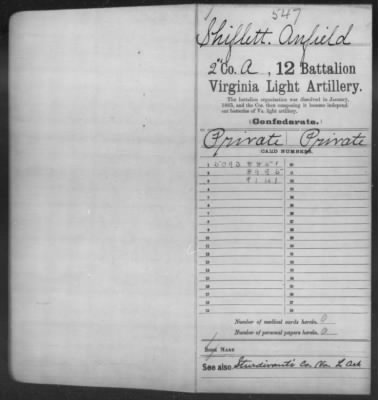 547
Shiflett. Anfield
2" Co. A, 12 Battalion
Virginia Light Artillery.
The battalion organization was dissolved in January,
1863, and the Cos. then composing it became independ-
ent batteries of Va. light artillery.
(Confederate.)
Private | Private
CARD NUMBERS.
1
2
3
4
5
6
7
8
9
10
11
12
13
14
Number of medical cards herein. 0
Number of personal papers herein. 0
BOOK MARK
See also Sturdivant's Co. Va. L Art